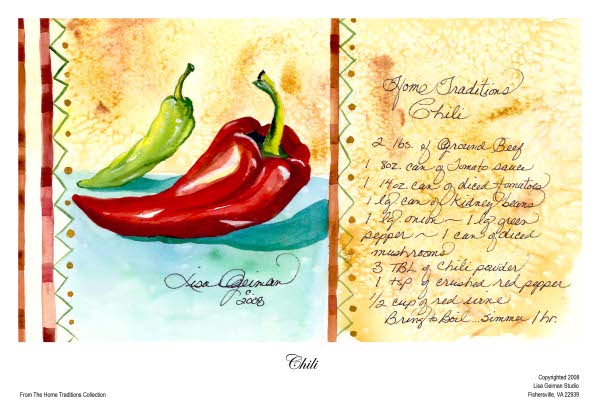 Home Traditions
Chili
2 lbs. of Ground Beef
1 8oz. can of Tomato sauce
1 14oz. can of diced tomatoes
1 lg can of Kidney beans
1 lg onion ~ 1 lg green
pepper ~ 1 can of diced
mushrooms
3 TBL of chili powder
1 tsp of crushed red pepper
1/2 cup of red wine
Bring to Boil...simmer 1 hr.
Lisa Geiman
©
2008
Chili
From The Home Traditions Collection
Copyrighted 2008
Lisa Geiman Studio
Fishersville, VA 22939